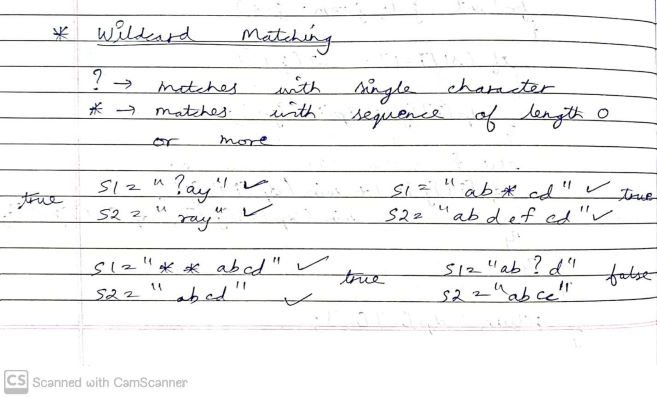 * Wildcard Matching
? → matches with single character
* → matches with sequence of length 0
or more
true S1 = "?ay" ✓ S1 = "ab*cd" ✓ true
S2 = "ray" ✓ S2 = "abdefcd" ✓
S1 = "**abcd" ✓ true S1 = "ab?d" false
S2 = "abcd" ✓ S2 = "abcc"
CS Scanned with CamScanner